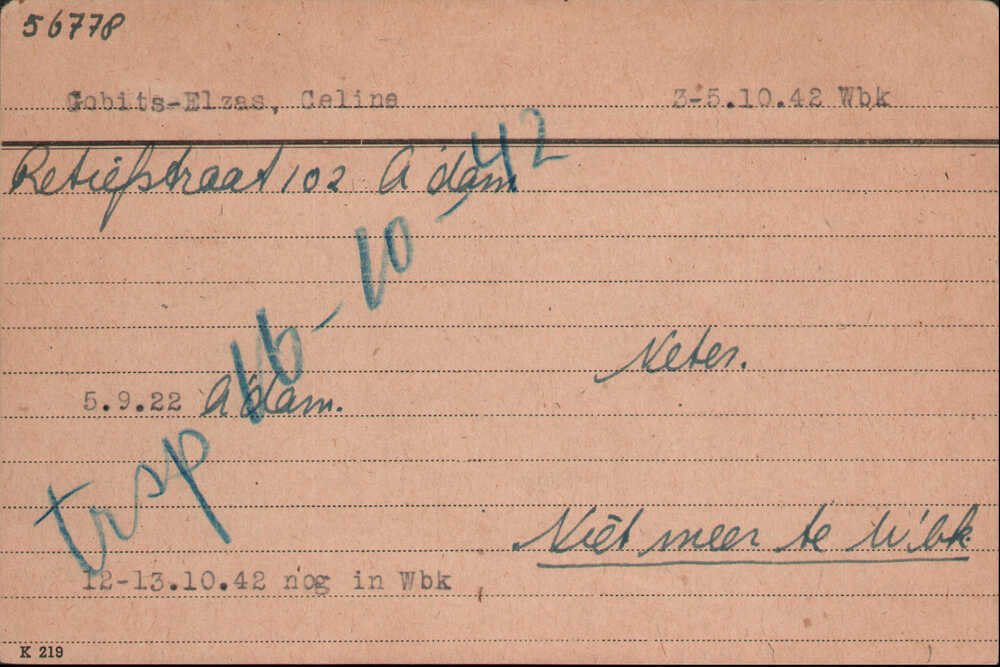 56778
Gobits-Elzas, Celine 3-5.10.42 Wbk
Retiefstraat 102 A'dam
trsp 16-10-42
Neter.
5.9.22 A'dam.
Niet meer te W'bk.
12-13.10.42 nog in Wbk
K 219